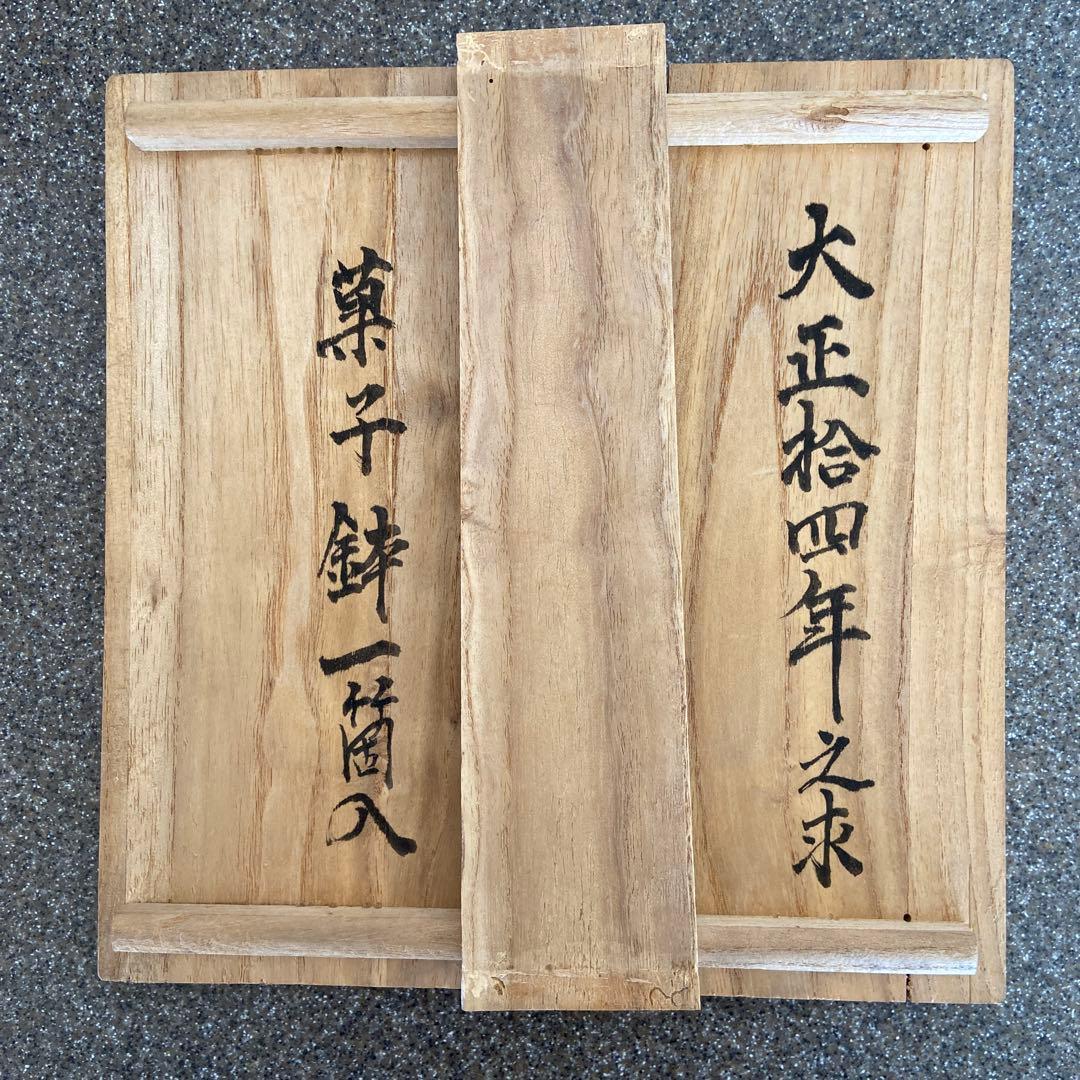 大正拾四年之求
菓子鉢一箇入